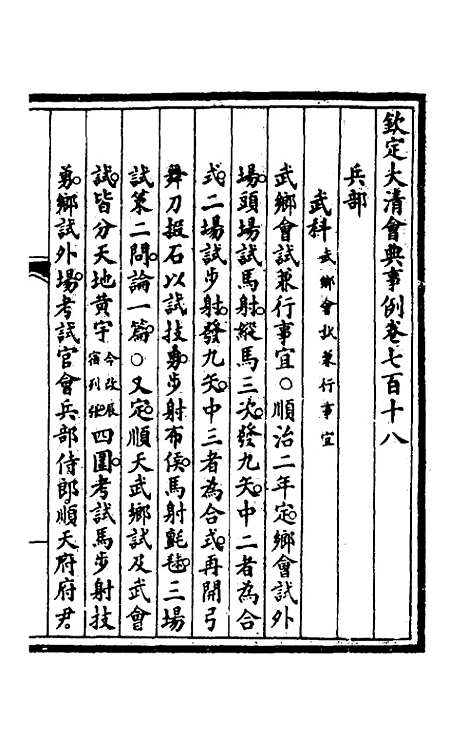 欽定大清會典事例卷七百十八
兵部
武科武鄉會試兼行事宜
武鄉會試兼行事宜○順治二年定鄉會試外
場頭場試馬射縱馬三次發九矢中二者為合
式二場試步射發九矢中三者為合式再開弓
舞刀掇石以試技勇步射布侯馬射氈毬三場
試策二問論一篇○又定順天武鄉試及武會
試皆分天地黃宇今改辰宿列張四圍考試馬步射技
勇鄉試外場考試官會兵部侍郎順天府府尹